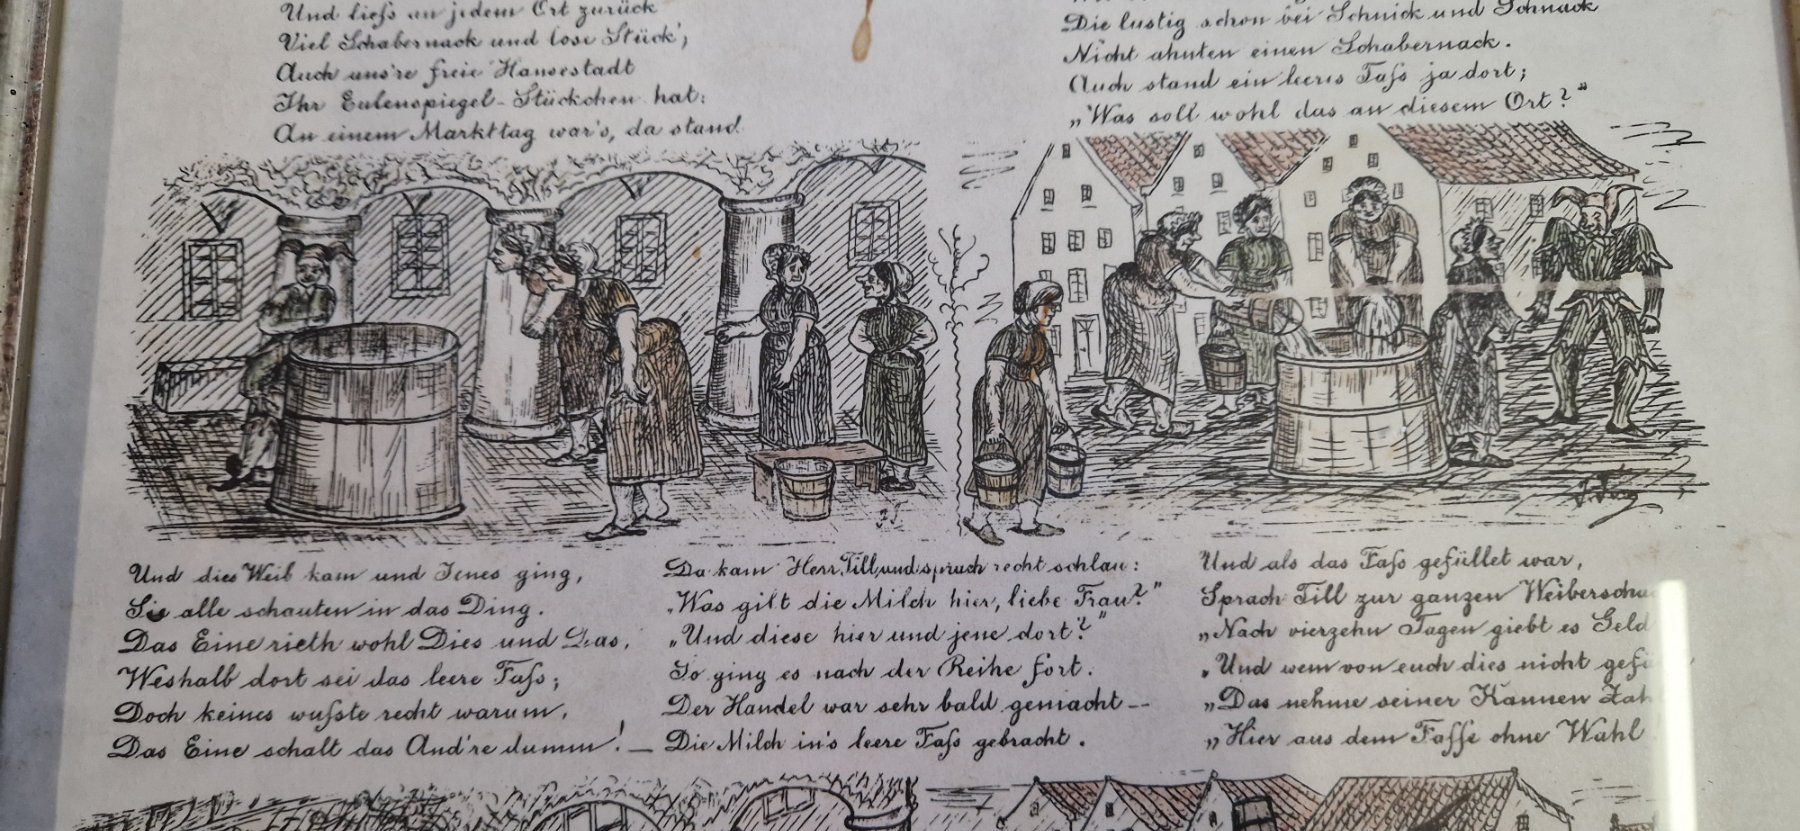 Und liess an jedem Ort zurück
Viel Schabernack und lose Stück';
Auch uns're freie Hansestadt
Ihr Eulenspiegel-Stückchen hat:
An einem Markttag war's, da stand
Die lustig schon bei Schnick und Schnack
Nicht ahnten einen Schabernack.
Auch stand ein leeres Fass ja dort;
„Was soll wohl das an diesem Ort?"
Und dies Weib kam und Jenes ging,
Sie alle schauten in das Ding.
Das Eine rieth wohl Dies und Das,
Weshalb dort sei das leere Fass;
Doch keines wusste recht warum,
Das Eine schalt das And're dumm! —
Da kam Herr Till und sprach recht schlau:
„Was gilt die Milch hier, liebe Frau?"
„Und diese hier und jene dort?"
So ging es nach der Reihe fort.
Der Handel war sehr bald gemacht --
Die Milch in's leere Fass gebracht.
Und als das Fass gefüllet war,
Sprach Till zur ganzen
„Nach vierzehn Tagen giebt es Geld
„Und wem von euch dies nicht
„Das nehme seiner Kannen
„Hier aus dem Fasse ohne Wahl